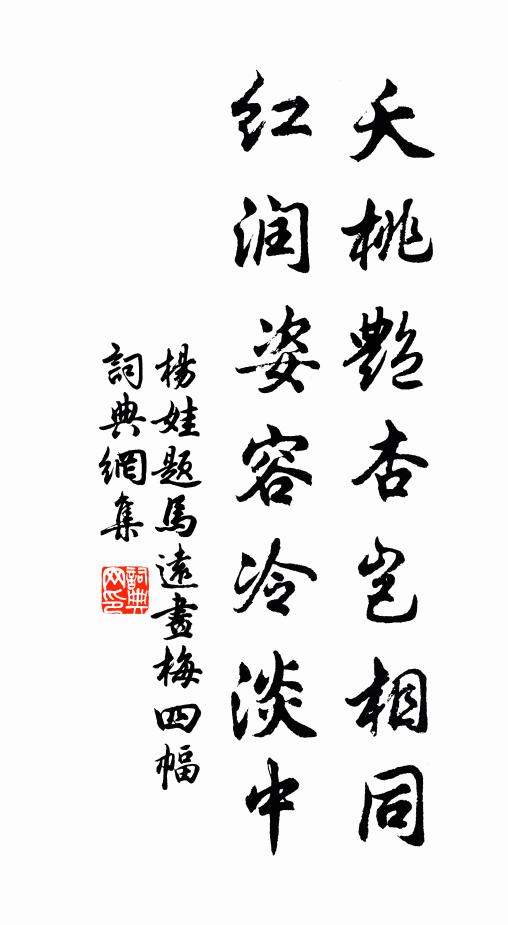 夭桃艷杏岂相同
红润姿容冷淡中
楊娃题馬遠畫梅四幅
詞典網集
詞典
网印